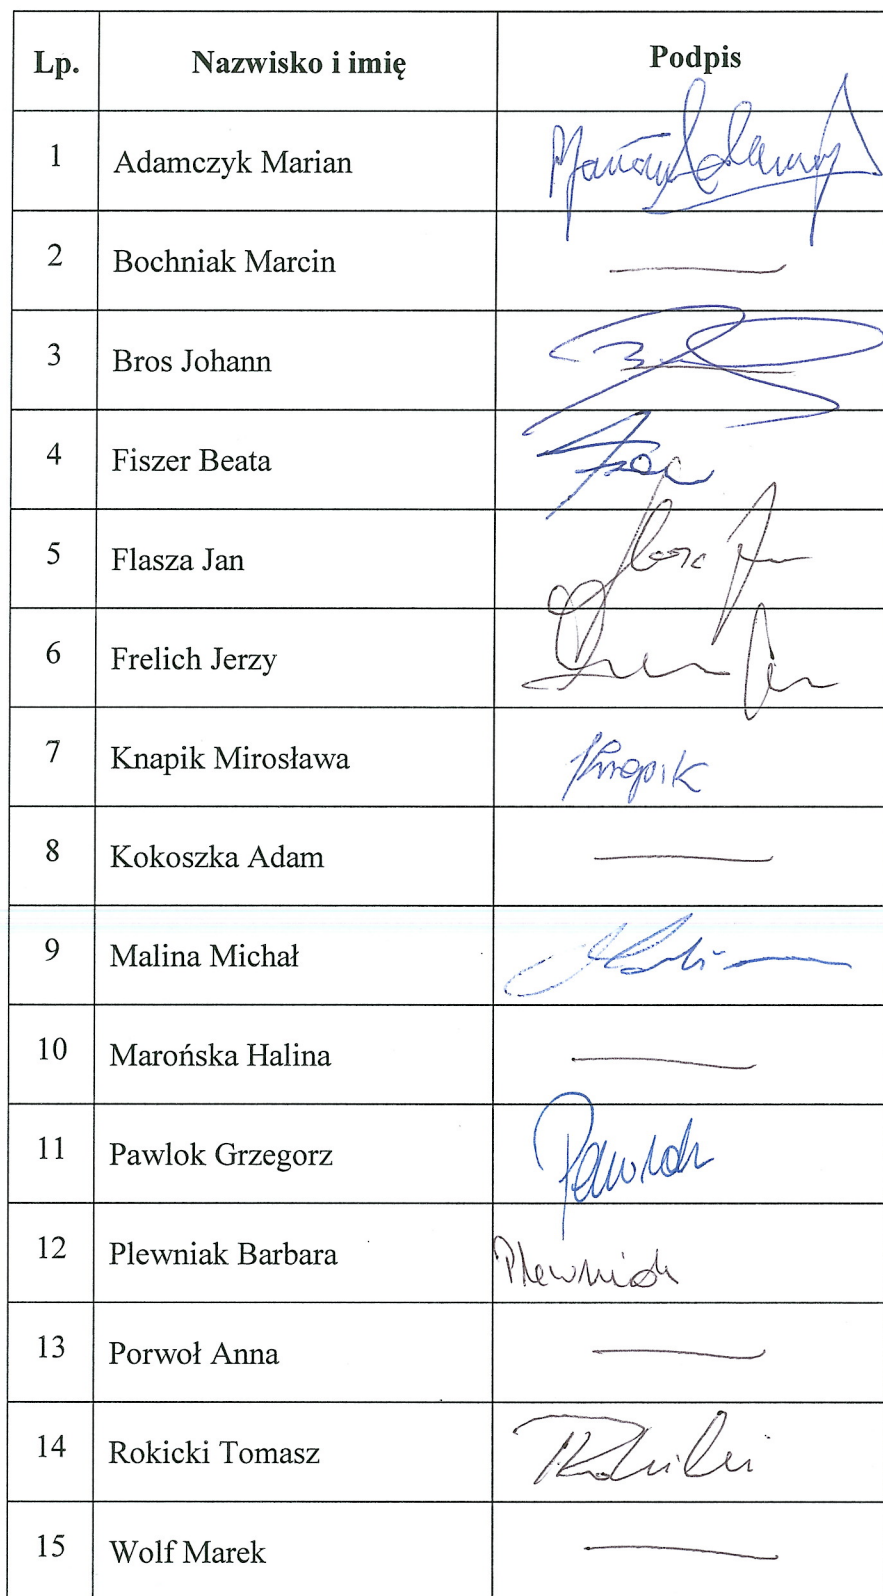 Lp. Nazwisko i imię Podpis
1 Adamczyk Marian
2 Bochniak Marcin —
3 Bros Johann
4 Fiszer Beata
5 Flasza Jan
6 Frelich Jerzy
7 Knapik Mirosława Knapik
8 Kokoszka Adam —
9 Malina Michał
10 Marońska Halina —
11 Pawlok Grzegorz Pawlok
12 Plewniak Barbara Plewniak
13 Porwoł Anna —
14 Rokicki Tomasz Rokicki
15 Wolf Marek —